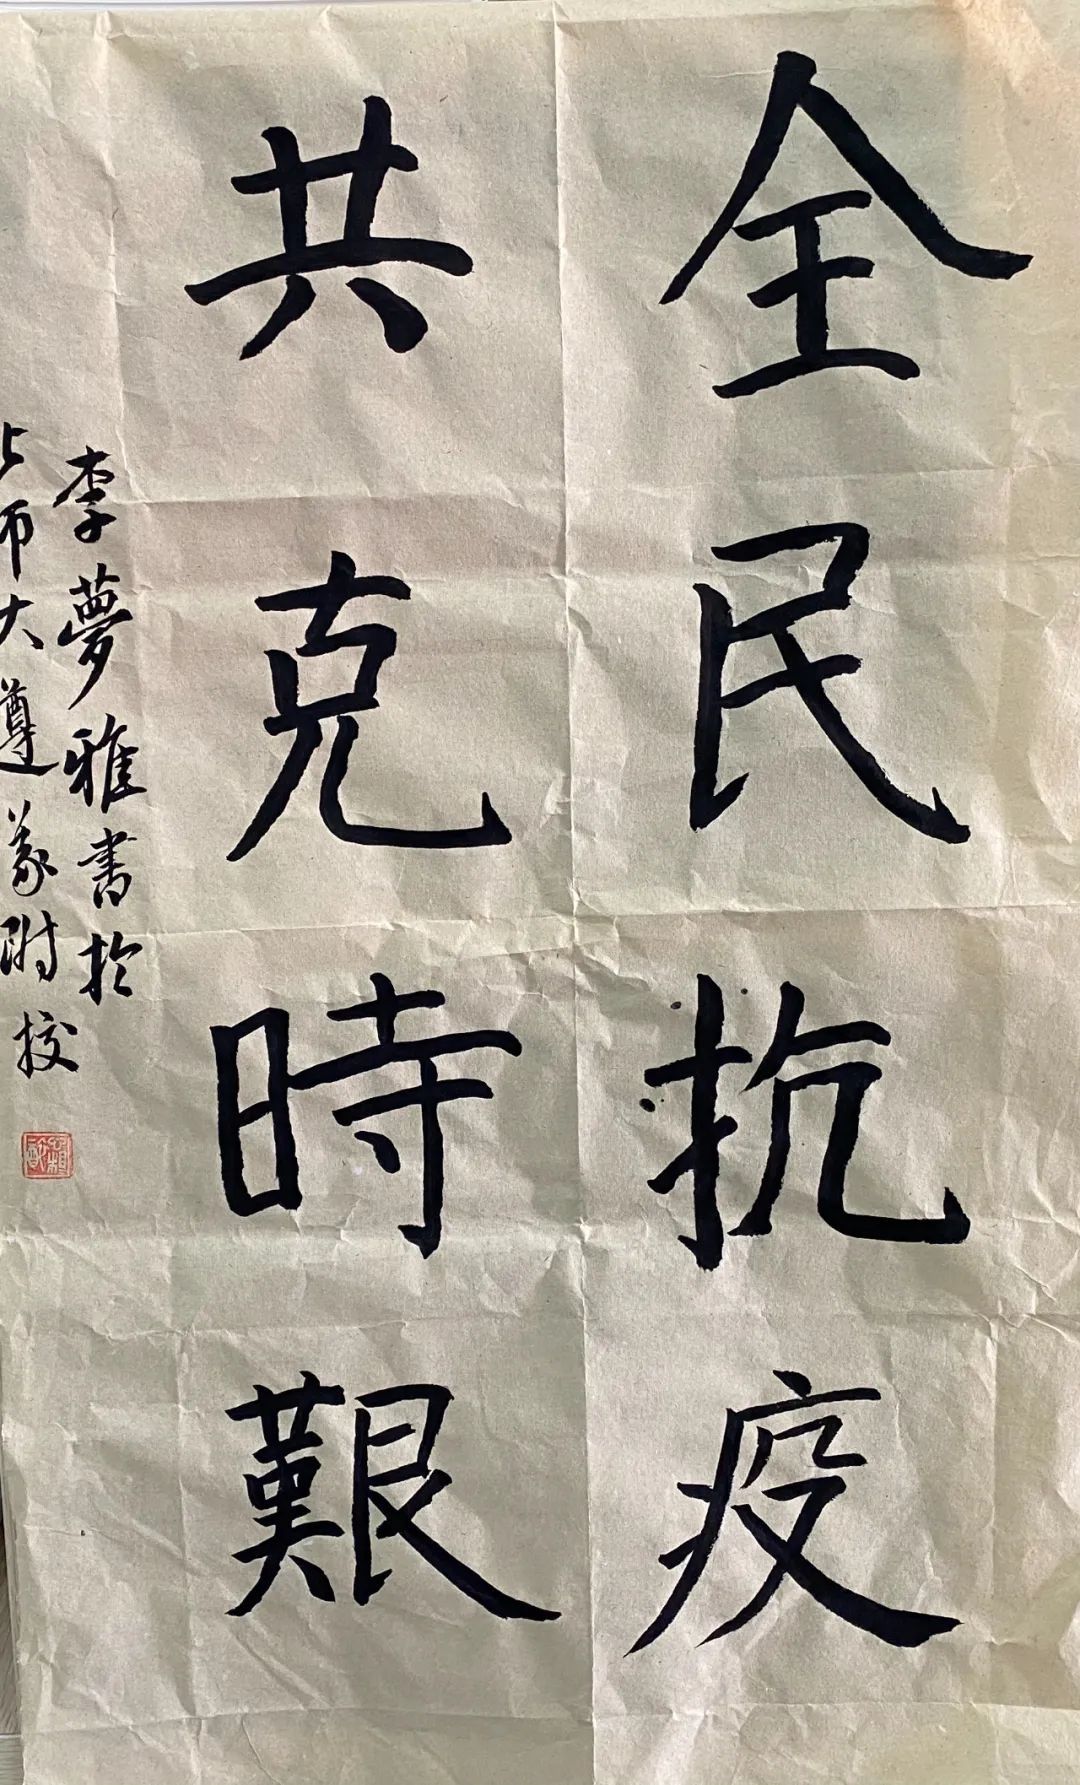 全民抗疫
共克時艱
李夢雅書於
北师大遵义附校